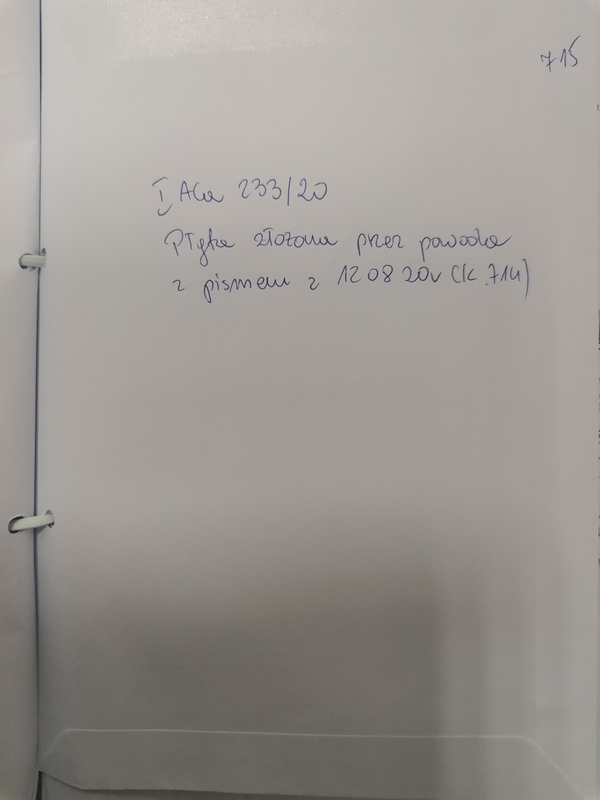 715
I ACa 233/20
Płyta złożona przez powoda
z pismem z 12 08 20r (k. 714)